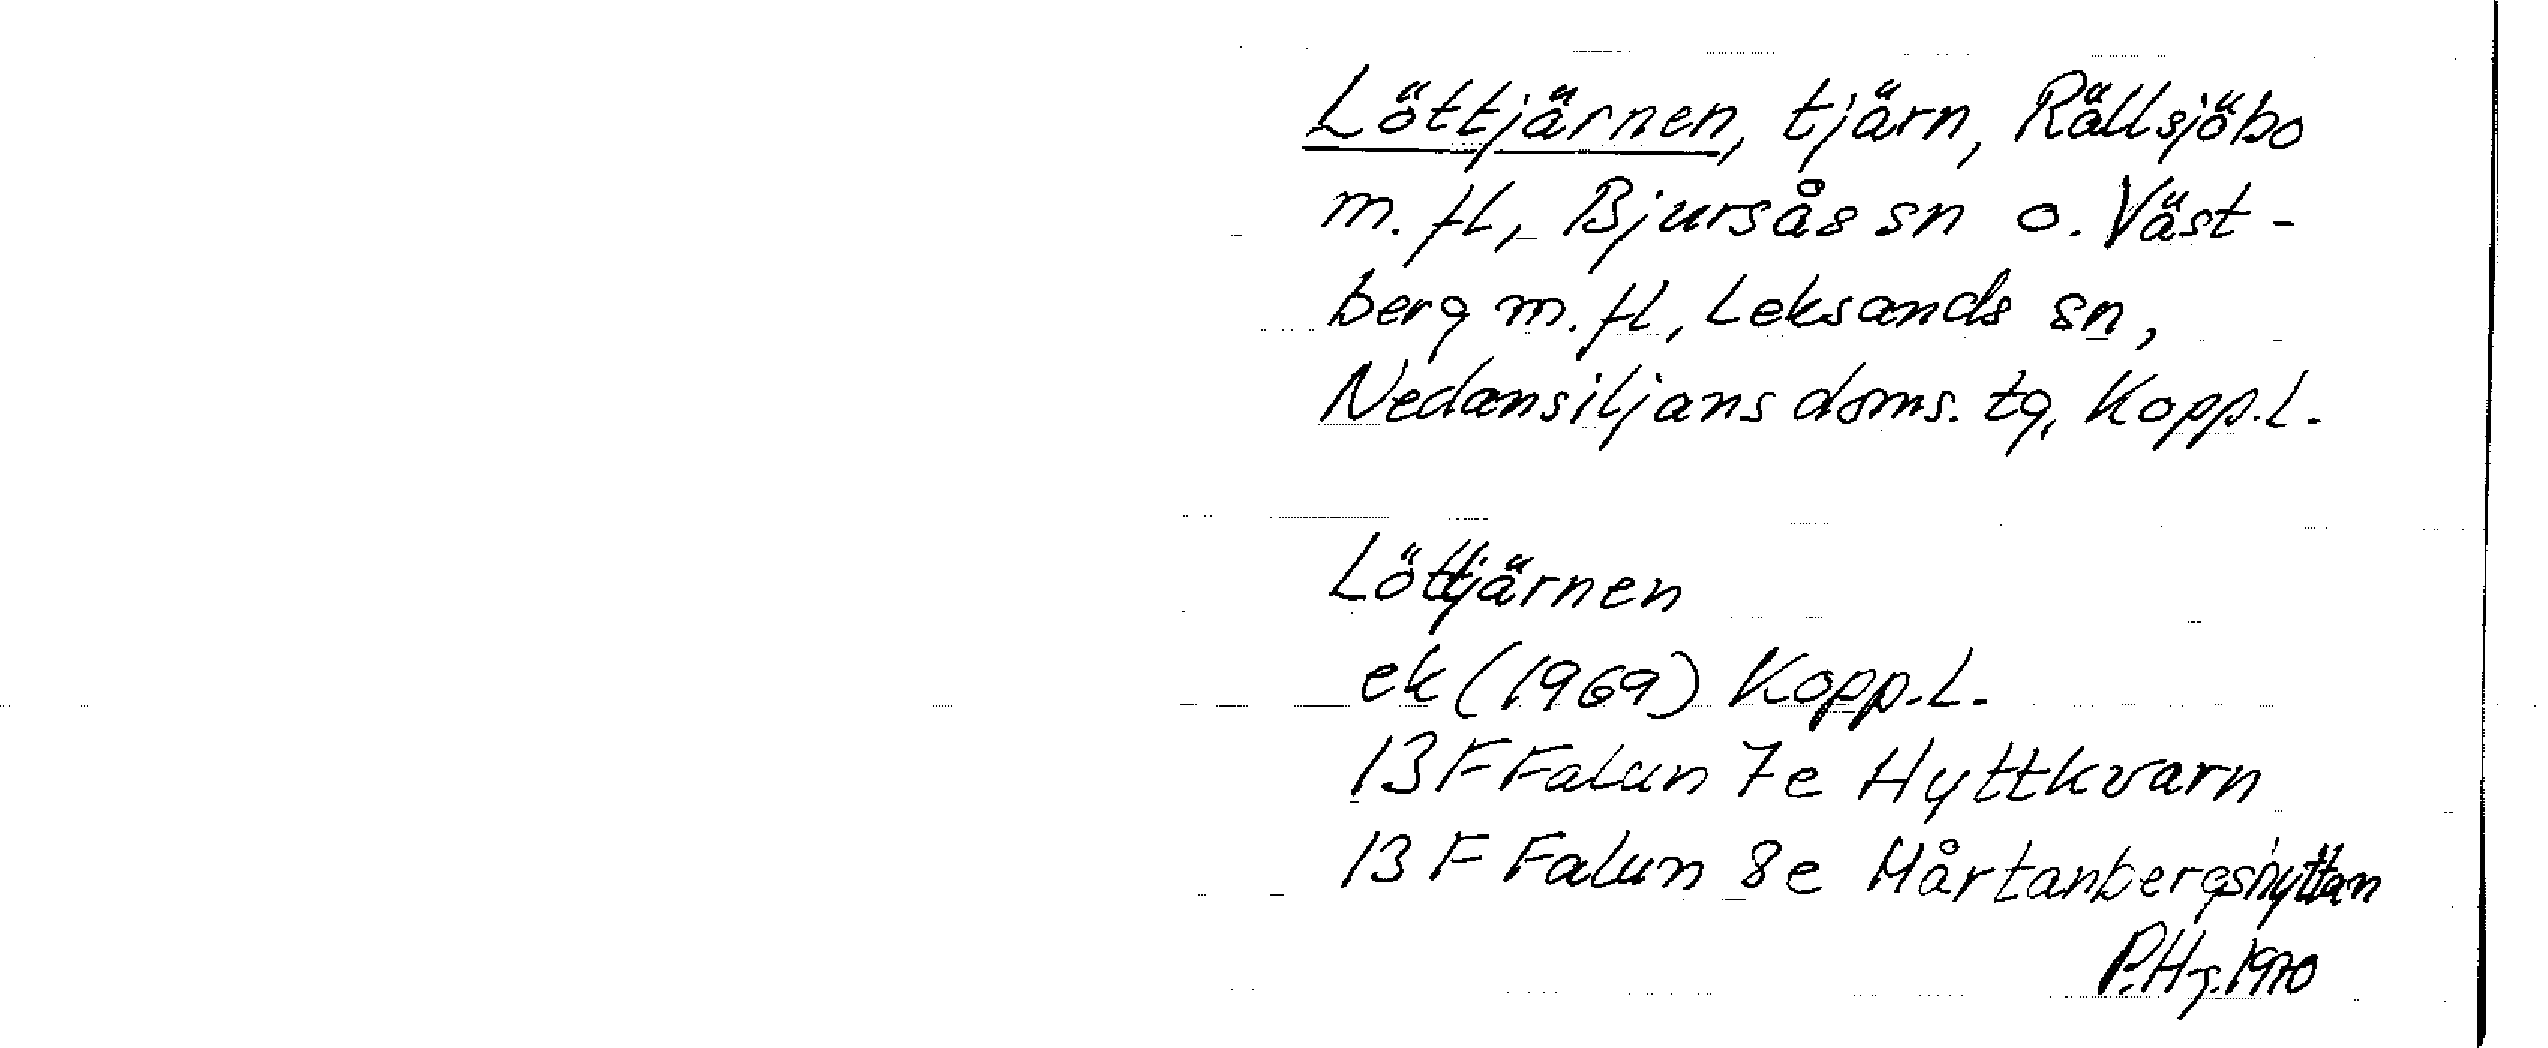 Löttjärnen, tjärn, Rällsjöbo
m. fl, Bjursås sn o. Väst-
berg m. fl, Leksands sn,
Nedansiljans doms. tg, Kopp.l.
Löttjärnen
ek (1969) Kopp.l.
13 F Falun 7e Hyttkvarn
13 F Falun 8e Mårtanbergshyttan
P.Hj. 1970